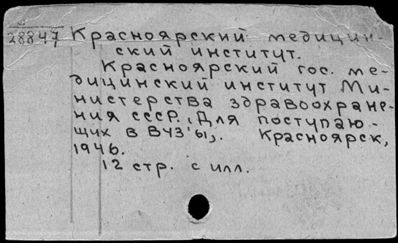 28847 Красноярский медицин-
ский институт.
Красноярский гос. ме-
дицинский институт Ми-
нистерства здравоохране-
ния СССР. /Для поступаю-
щих в ВУЗ'ы/. Красноярск,
1946.
12 стр. с илл.